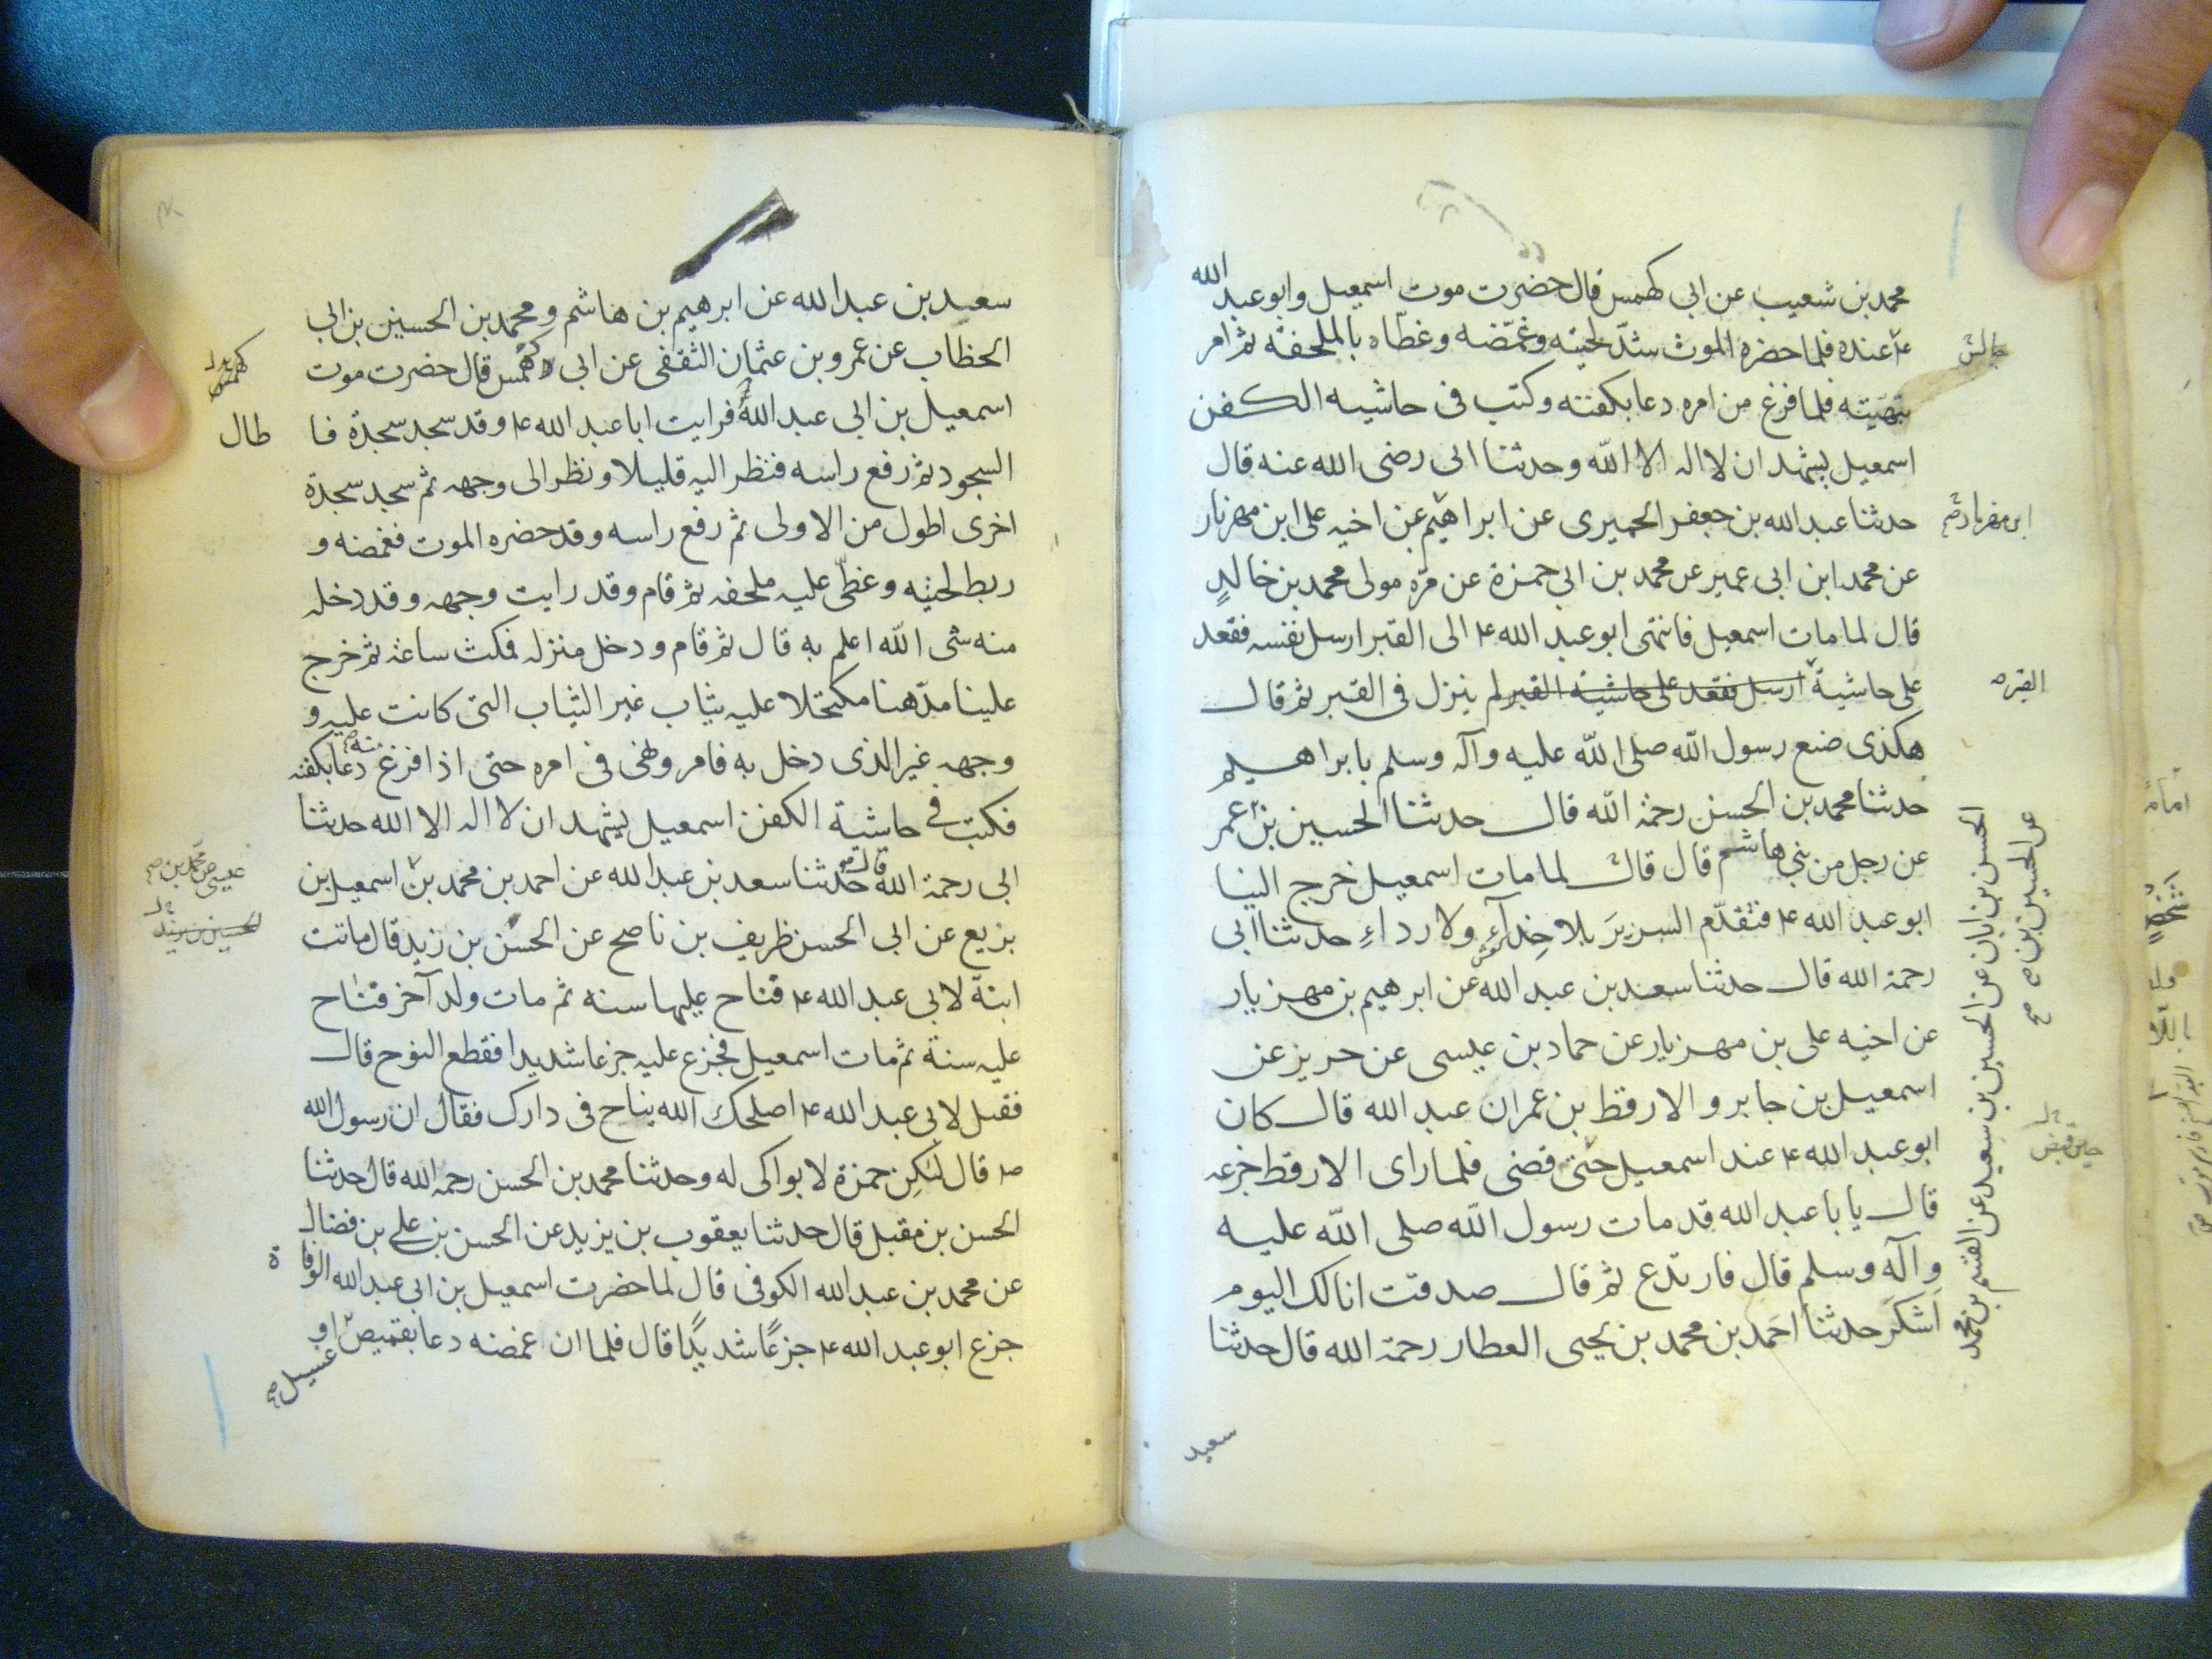 محمد بن شعيب عن ابى كهمس قال حضرت موت اسمعيل و ابو عبد الله
ع عنده فلما حضره الموت شدّ لحيته وغمّضه وغطّاه بالملحفة ثم امر
بتهيئته فلما فرغ من امره دعا بكفنه وكتب فى حاشيه الكفن
اسمعيل يشهد ان لا اله الا الله وحدثنا ابى رضى الله عنه قال
حدثنا عبد الله بن جعفر الحميرى عن ابراهيم عن اخيه على ابن مهزيار
عن محمد ابن ابى عمير عن محمد بن ابى حمزة عن مرّه مولى محمد بن خالدٍ
قال لما مات اسمعيل فانتهى ابو عبد الله ع الى القبر ارسل نفسه فقعد
على حاشية ارسل فقعد على حاشية القبر لم ينزل فى القبر ثم قال
هكذى صنع رسول الله صلى الله عليه وآله وسلم بابراهيم
حدثنا محمد بن الحسن رحمة الله قال حدثنا الحسين بن عمر
عن رجل من بنى هاشم قال قال لما مات اسمعيل خرج الينا
ابو عبد الله ع فتقدّم السريرَ بلا حِذاءٍ ولا رداءٍ حدثنا ابى
رحمة الله قال حدثنا سعد بن عبد الله عن ابرهيم بن مهزيار
عن اخيه على بن مهزيار عن حماد بن عيسى عن حريز عن
اسمعيل بن جابر و الارقط بن عمران عبد الله قال كان
ابو عبد الله ع عند اسمعيل حتى قضى فلما راى الارقط جزعه
قال يا با عبد الله قد مات رسول الله صلى الله عليه
وآله وسلم قال فارتدع ثم قال صدقت انا لك اليوم
اشكر حدثنا احمد بن محمد بن يحيى العطار رحمة الله قال حدثنا
سعيد
القبر ص
الحسن بن ابان عن الحسين بن سعيد عن القسم بن محمد
عن الحسين بن
سعيد بن عبد الله عن ابرهيم بن هاشم ومحمد بن الحسين بن ابى
الخطاب عن عمرو بن عثمان الثقفى عن ابى كهمس قال حضرت موت
كهمس
اسمعيل بن ابى عبد الله فرايت ابا عبد الله ع وقد سجد سجدة فا
طال
السجود ثم رفع راسه فنظر اليه قليلا ونظر الى وجهه ثم سجد سجدة
اخرى اطول من الاولى ثم رفع راسه وقد حضره الموت فغمضه و
ربط لحيته وغطّى عليه ملحفه ثم قام وقد رايت وجهه وقد دخله
منه شى الله اعلم به قال ثم قام ودخل منزله فمكث ساعة ثم خرج
علينا مدّهنا مكتحلا عليه ثياب غير الثياب التى كانت عليه و
وجهه غير الذى دخل به فامر ونهى فى امره حتى اذا فرغ منه دعا بكفنه
فكتب فى حاشية الكفن اسمعيل يشهد ان لا اله الا الله حدثنا
ابى رحمة الله قال حدثنا سعد بن عبد الله عن احمد بن محمد بن اسمعيل بن
عيسى عن محمد بن
بزيع عن ابى الحسن ظريف بن ناصح عن الحسن بن زيد قال ماتت
ابنة لابى عبد الله ع فناح عليها سنة ثم مات ولد آخر فناح
عليه سنة ثم مات اسمعيل فجزع عليه جزعا شديدا فقطع النوح قال
فقيل لابى عبد الله ع اصلحك الله يناح فى دارك فقال ان رسول الله
ص قال لكن حمزة لا بواكى له وحدثنا محمد بن الحسن رحمه الله قال حدثنا
الحسن بن مقبل قال حدثنا يعقوب بن يزيد عن الحسن بن على بن فضال
عن محمد بن عبد الله الكوفى قال لما حضرت اسمعيل بن ابى عبد الله الوفاة
جزع ابو عبد الله ع جزعًا شديدًا قال فلما ان غمضه دعا بقميص او
غسيل